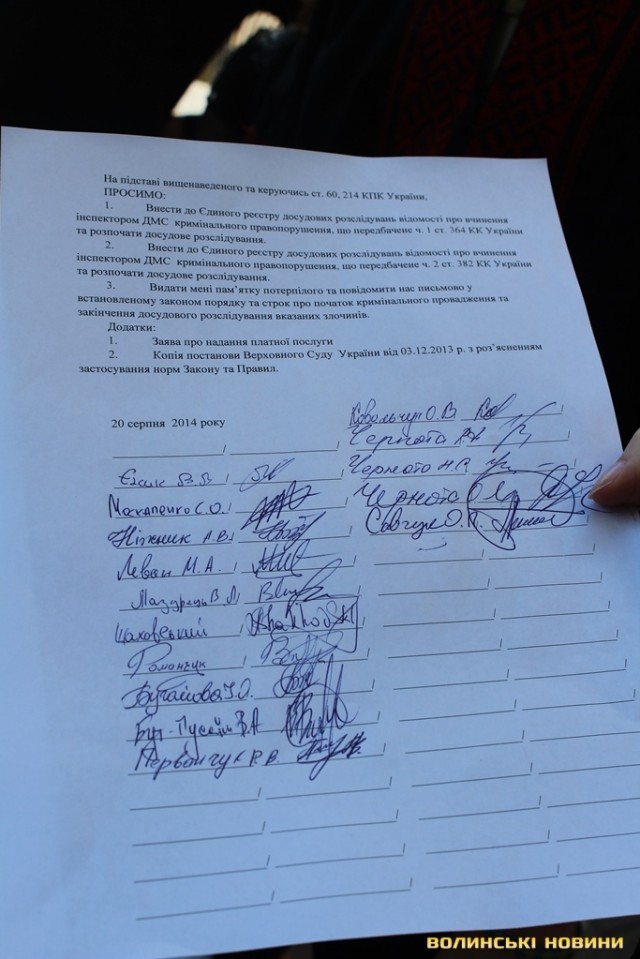 На підставі вищенаведеного та керуючись ст. 60, 214 КПК України.
ПРОСИМО:
1. Внести до Єдиного реєстру досудових розслідувань відомості про вчинення
інспектором ДМС кримінального правопорушення, що передбачене ч. 1 ст. 364 КК України
та розпочати досудове розслідування.
2. Внести до Єдиного реєстру досудових розслідувань відомості про вчинення
інспектором ДМС кримінального правопорушення, що передбачене ч. 2 ст. 382 КК України
та розпочати досудове розслідування.
3. Видати мені пам’ятку потерпілого та повідомити нас письмово у
встановленому законом порядку та строк про початок кримінального провадження та
закінчення досудового розслідування вказаних злочинів.
Додатки:
1. Заява про надання платної послуги
2. Копія постанови Верховного Суду України від 03.12.2013 р. з роз’ясненням
застосування норм Закону та Правил.
20 серпня 2014 року
Ковальчук О.В
Чернота
Чернота Н.Р.
Чернота
Савчук О.П.
Макапенко С.О.
Ніжник А.В.
Леван М.А.
Мазурець В
Щаховський
Романчук
Первачук
ВОЛИНСЬКІ НОВИНИ